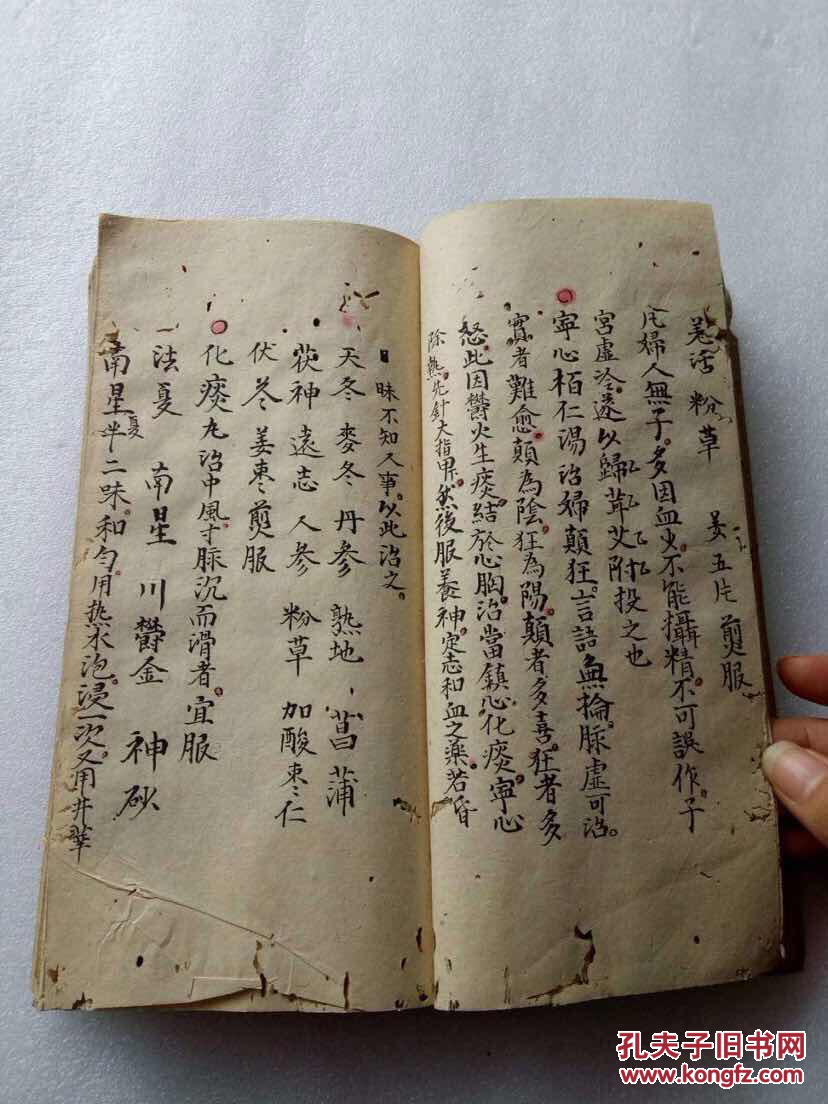 羌活 粉草 姜五片煎服
凡婦人無子。多因血少不能攝精。不可誤作。子
宮虛冷。遂以歸茸艾附投之也
寧心栢仁湯治婦顛狂。言語無掄。脉虛可治。
實者難愈。顛為陰。狂為陽。顛者多喜。狂者多
怒。此因鬱火生痰。結於心胸。治當鎮心化痰。寧心
除熱。先針大指甲。然後服養神。定志和血之藥。若昏
昧不知人事。以此治之。
天冬 麥冬 丹參 熟地 菖蒲
茯神 遠志 人參 粉草 加酸枣仁
伏苓 姜枣煎服
化痰丸治中風寸脉沉而滑者。宜服
法夏 南星 川鬱金 神砂
南星半夏二味。和勻用热水泡。浸一次。又用井華
孔夫子旧书网
www.kongfz.com